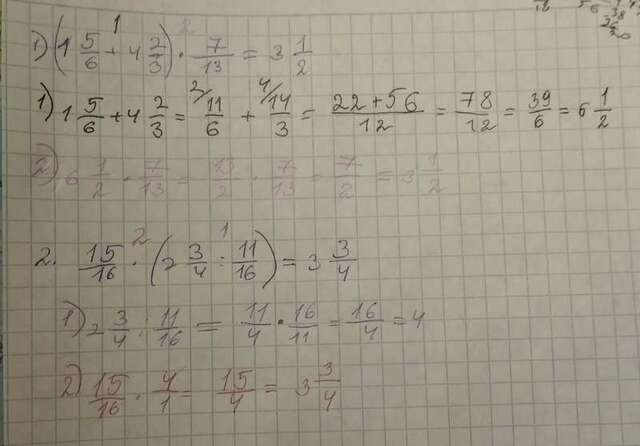 1) (1 5/6 + 4 2/3) · 7/13 = 3 1/2
1) 1 5/6 + 4 2/3 = 11/6 + 14/3 = 22+56/12 = 78/12 = 39/6 = 6 1/2
2) 6 1/2 · 7/13 = 13/2 · 7/13 = 7/2 = 3 1/2
2. 15/16 · (2 3/4 : 11/16) = 3 3/4
1) 2 3/4 : 11/16 = 11/4 · 16/11 = 16/4 = 4
2) 15/16 · 4/1 = 15/4 = 3 3/4